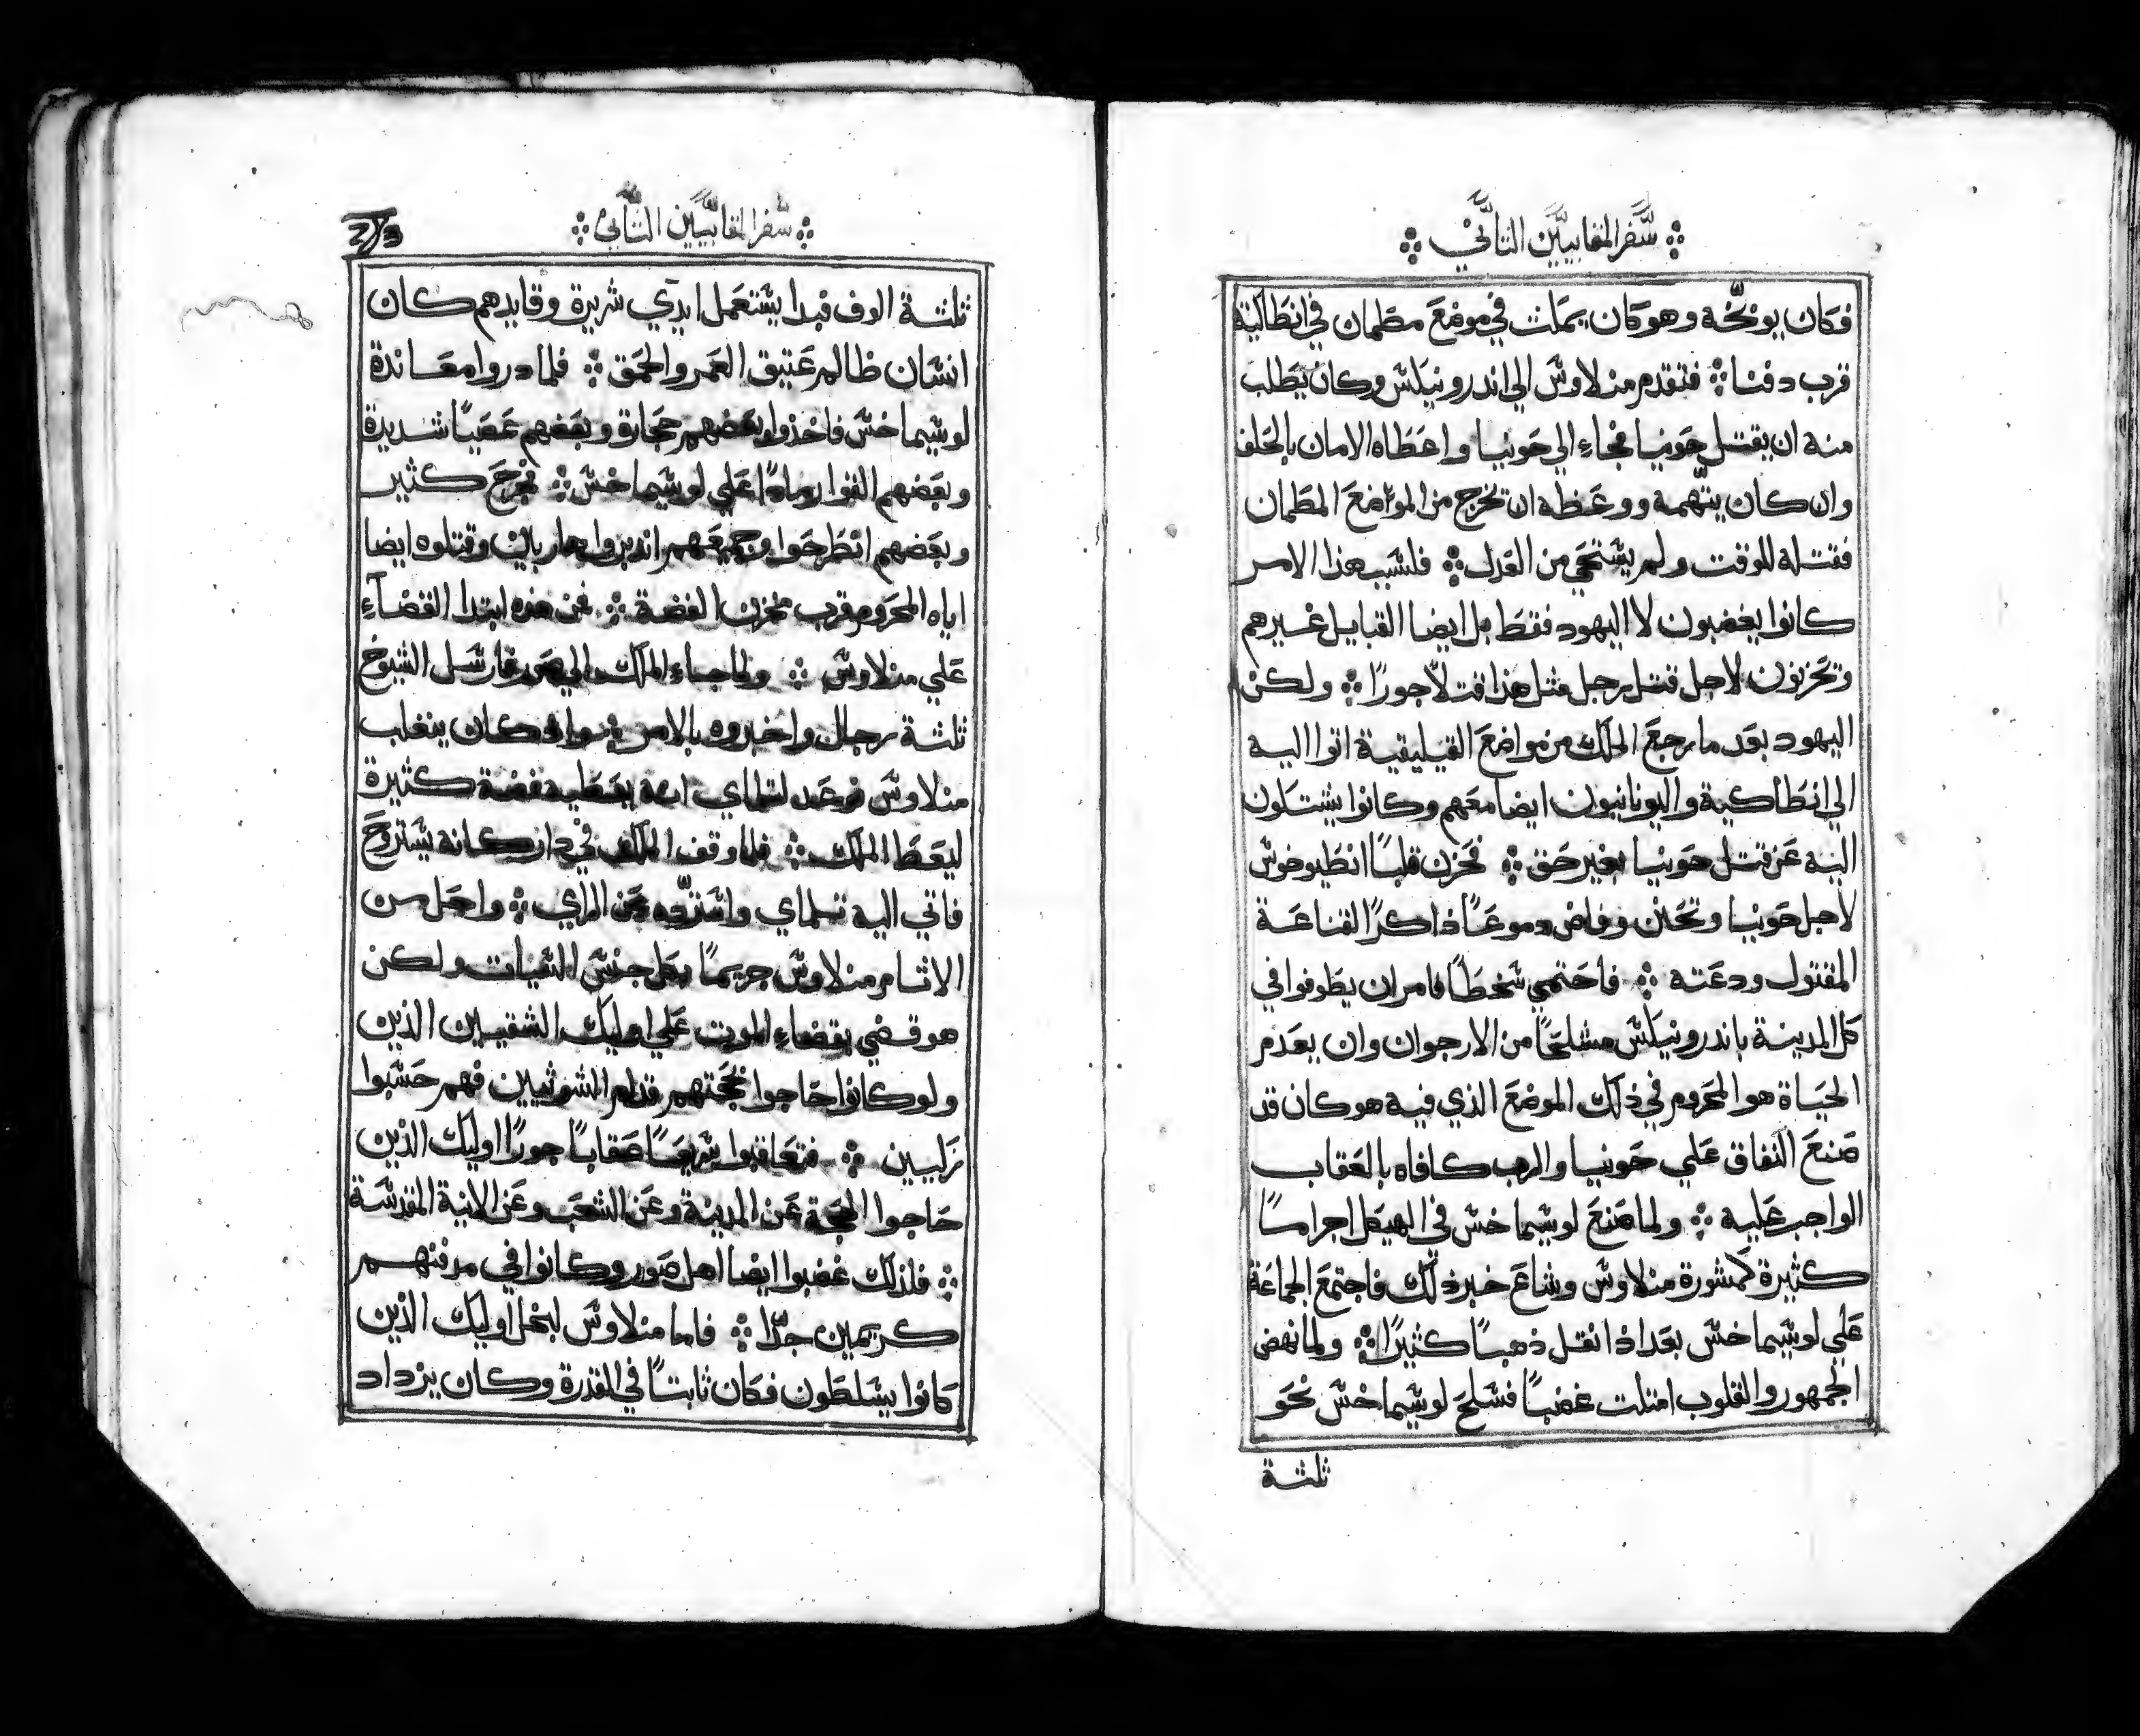 سفر المقابيين الثاني
فكان يوبخه وهو كان يمكث في موضع مطمان في انطاكية
قرب دفنا ۞ فتقدم منلاوس الي اندرونيكس وكان يطلب
منه ان يقتل حونيا فجاء الي حونيا واعطاه الامان بالحلف
وان كان يتهمه ووعظه ان تخرج من المواضع المطمان
فقتله للوقت ولم يستحي من العدل ۞ فلسبب هذا الامر
كانوا يغضبون لا اليهود فقط بل ايضا القبايل غيرهم
وتحزنون لاجل قتل رجل مثل هذا قتلا جورًا ۞ ولكن
اليهود بعد ما رجع الملك من مواضع القيليقية اتوا اليه
الي انطاكية واليونانيون ايضا معهم وكانوا يشتكون
اليه عن قتل حونيا بغير حق ۞ فحزن قلبًا انطيوخوس
لاجل حونيا وتحنن وفاض دموعًا ذاكرًا القناعة
المقتول ودعته ۞ فاحتمي سخطًا فامر ان يطوفوا في
كل المدينة باندرونيكس مشلحًا من الارجوان وان يعدم
الحياة هو المحروم في ذلك الموضع الذي فيه هو كان قد
صنع النفاق علي حونيا والرب كافاه بالعقاب
الواجب عليه ۞ ولما صنع لوسيماخس في الهيكل اجرامًا
كثيرة كمشورة منلاوس وشاع خبر ذلك فاجتمع الجماعة
علي لوسيماخس بعد اذ انقل ذهبًا كثيرًا ۞ ولما نهض
الجمهور والقلوب امتلت غضبًا فسلح لوسيماخس نحو
ثلثة
سفر المقابيين الثاني
ثلثة الوف فبدا يستعمل ايدي شريرة وقايدهم كان
انسان ظالم عتيق العمر والحمق ۞ فلما دروا معاندة
لوسيماخس فاخذوا بعضهم حجارة وبعضهم عصيًا شديدة
وبعضهم القوا رمادًا علي لوسيماخس ۞ فجرح كثير
وبعضهم انطرحوا وجميعهم انهزموا هاربين وقتلوه ايضا
اياه المحروم قرب مخزن الفضة ۞ فمن هذه ابتدا القضآء
علي منلاوس ۞ ولما جاء الملك الي صور فارسل الشيوخ
ثلثة رجال واخبروه بالامر ۞ واذ كان ينغلب
منلاوس فوعد لتلماي انه يعطيه فضة كثيرة
ليعظ الملك ۞ فلما وقف الملك في دار كانه يستروح
فاتي اليه تلماي واستردّه عن الراي ۞ واحل من
الاثام منلاوس جريمًا بكل جنس السيات ولكن
هو قضي بقضاء الموت علي اوليك الشقيين الذين
ولو كانوا حاجوا بحجتهم قدام الشوثيين فهم حسبوا
زليين ۞ فتعاقبوا سريعًا عقابًا جورًا اوليك الذين
حاجوا الحجة عن المدينة وعن الشعب وعن الانية المقدسة
۞ فلذلك غضبوا ايضا اهل صور وكانوا في مدفنهم
كريمين جدًّا ۞ فاما منلاوس لبخل اوليك الذين
كانوا يسلطون فكان ثابتًا في القدرة وكان يزداد